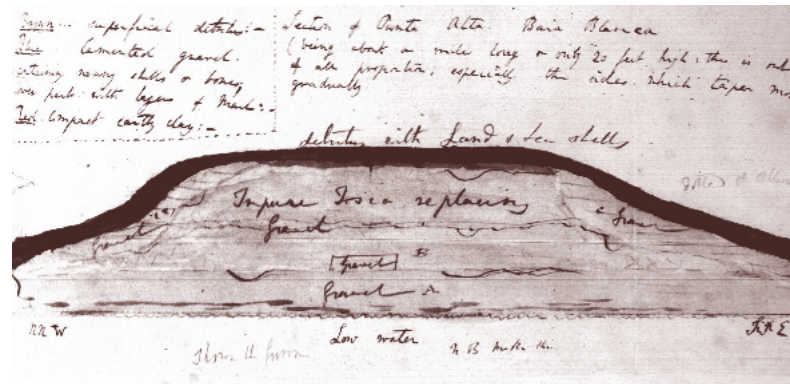 Brown - superficial detritus:-
Blue Cemented gravel.
containing many shells & bones,
over part with layers of Marl:-
Red. Compact earthy clay:-
Section of Punta Alta. Baia Blanca
(being about a mile long & only 20 feet high: this is out
of all proportion; especially the sides which taper mo
gradually
debritus with Land & Sea shells
Impure Tosca replacing
Gravel
Gravel
c Gravel
[Gravel] B
Gravel A
NNW
Low water
N B make the